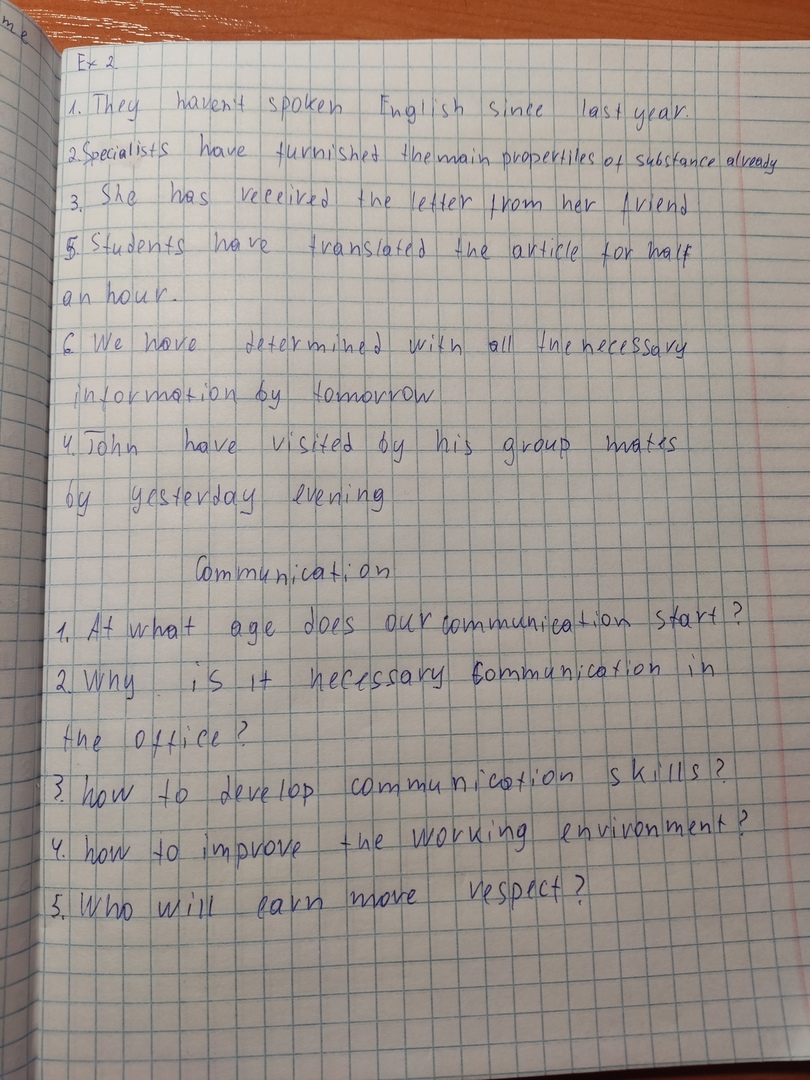 me
Ex 2.
1. They haven't spoken English since last year.
2. Specialists have furnished the main propertiles of substance already
3. She has received the letter from her friend
5. Students have translated the article for half
an hour.
6 We have determined with all the necessary
information by tomorrow
4. John have visited by his group mates
by yesterday evening
Communication
1. At what age does our communication start?
2. Why is it necessary communication in
the office?
3. how to develop communication skills?
4. how to improve the working environment?
5. Who will earn more respect?